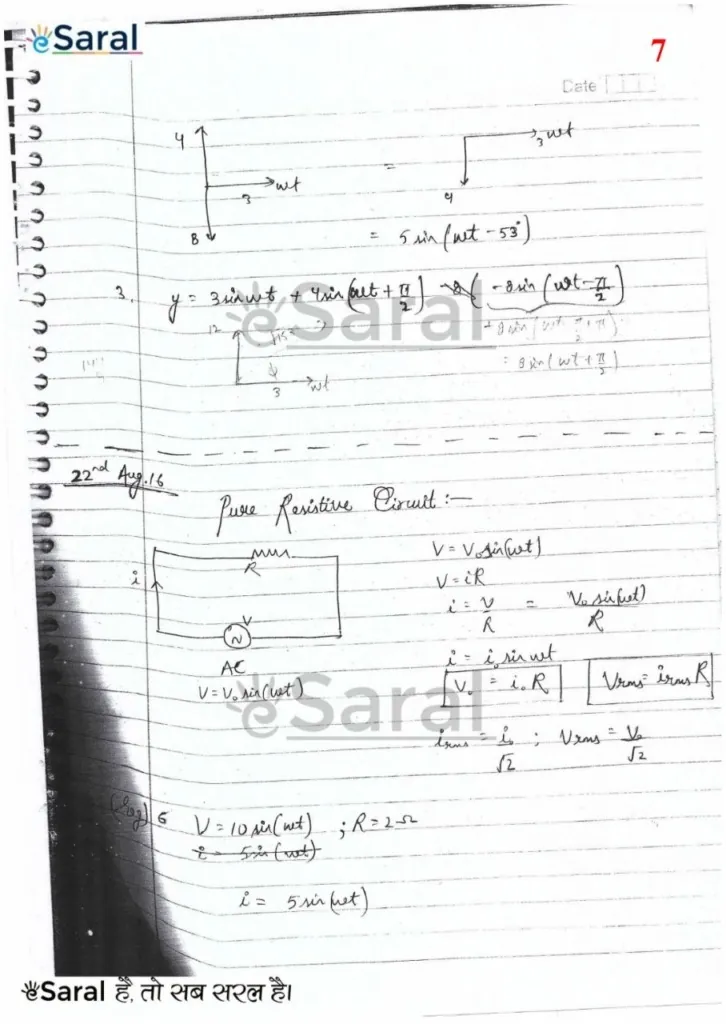 eSaral
7
Date
4
ωt
3
8
=
3 ωt
4
= 5 sin (ωt - 53°)
3. y = 3 sin ωt + 4 sin (ωt + π/2) - 8 sin (ωt - π/2)
eSaral
12
= 8 sin (ωt + π/2)
3 ωt
22nd Aug. 16
Pure Resistive Circuit :—
R
i
V
AC
V = V₀ sin (ωt)
V = V₀ sin (ωt)
V = iR
i = V/R = V₀ sin (ωt)/R
i = i₀ sin ωt
V₀ = i₀ R
Vrms = irms R
eSaral
irms = i₀/√2 ; Vrms = V₀/√2
6 V = 10 sin (ωt) ; R = 2 Ω
i = 5 sin (ωt)
i = 5 sin (ωt)
eSaral है, तो सब सरल है।